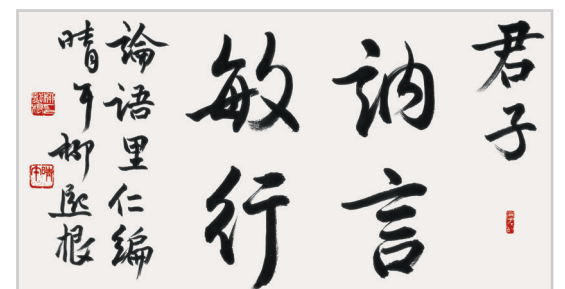 君子
訥言
敏行
論语里仁编
晴午柳熙根